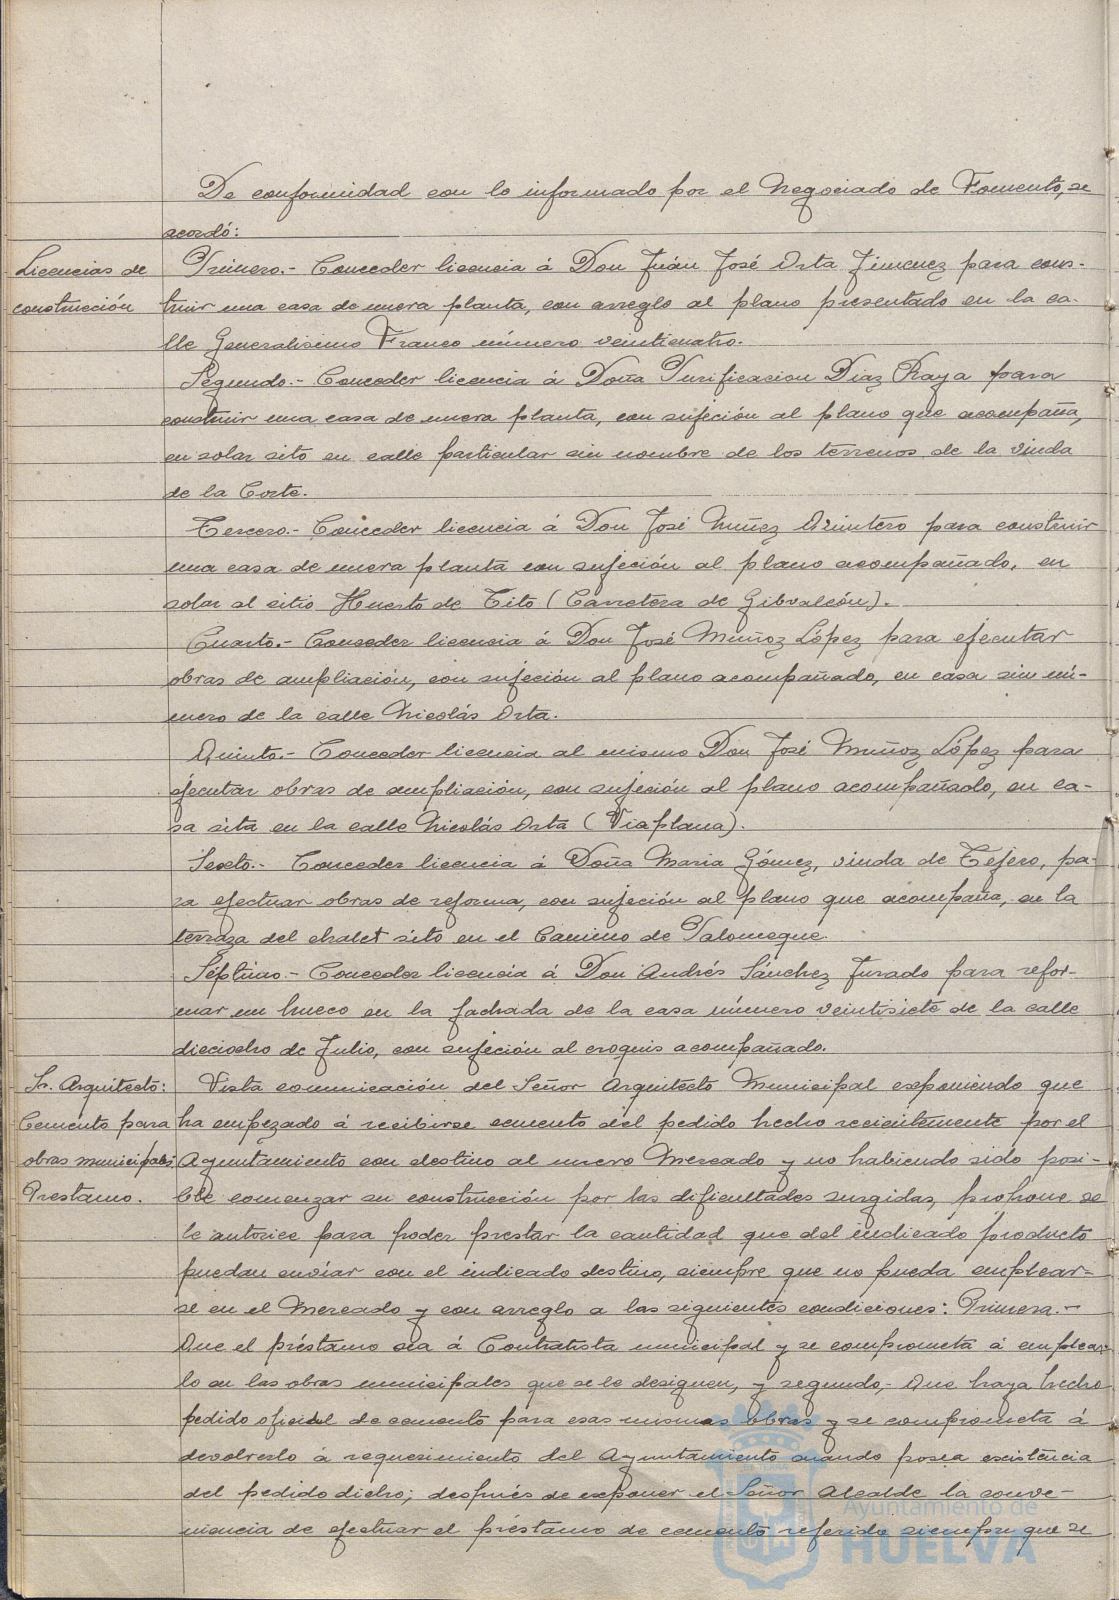 De conformidad con lo informado por el Negociado de Fomento, se
acordó:
Licencias de
construcción
Primero.- Conceder licencia á Don Juán José Orta Jimenez para cons-
truir una casa de nueva planta, con arreglo al plano presentado en la ca-
lle Generalisimo Franco número veinticuatro.
Segundo.- Conceder licencia á Doña Purificacion Diaz Raya para
construir una casa de nueva planta, con sujeción al plano que acompaña,
en solar sito en calle particular sin nombre de los terrenos de la viuda
de la Corte.
Tercero.- Conceder licencia á Don José Núñez Quintero para construir
una casa de nueva planta con sujeción al plano acompañado, en
solar al sitio Huerto de Tito (Carretera de Gibraleón).
Cuarto.- Conceder licencia á Don José Muñoz López para ejecutar
obras de ampliación, con sujeción al plano acompañado, en casa sin nú-
mero de la calle Nicolás Orta.
Quinto.- Conceder licencia al mismo Don José Muñoz López para
ejecutar obras de ampliación, con sujeción al plano acompañado, en ca-
sa sita en la calle Nicolás Orta (Viaplana).
Sexto.- Conceder licencia á Doña Maria Gómez, viuda de Tejero, pa-
ra efectuar obras de reforma, con sujeción al plano que acompaña, en la
terraza del chalet sito en el Camino de Palomeque.
Séptimo.- Conceder licencia á Don Andrés Sánchez Jurado para refor-
mar un hueco en la fachada de la casa número veintisiete de la calle
dieciocho de Julio, con sujeción al croquis acompañado.
Sr. Arquitecto:
Cemento para
obras municipales
Prestamo.
Vista comunicación del Señor Arquitecto Municipal exponiendo que
ha empezado á recibirse cemento del pedido hecho recientemente por el
Ayuntamiento con destino al nuevo Mercado y no habiendo sido posi-
ble comenzar su construcción por las dificultades surgidas, propone se
le autorice para poder prestar la cantidad que del indicado producto
puedan enviar con el indicado destino, siempre que no pueda emplear-
se en el Mercado y con arreglo a las siguientes condiciones: Primera.-
Que el préstamo sea á Contratista municipal y se comprometa á emplear-
lo en las obras municipales que se le designen, y segundo,- Que haya hecho
pedido oficial de cemento para esas mismas obras y se comprometa á
devolverlo á requerimiento del Ayuntamiento cuando posea existencia
del pedido dicho; después de exponer el Señor Alcalde la conve-
niencia de efectuar el préstamo de cemento referido siempre que se
Ayuntamiento de
HUELVA